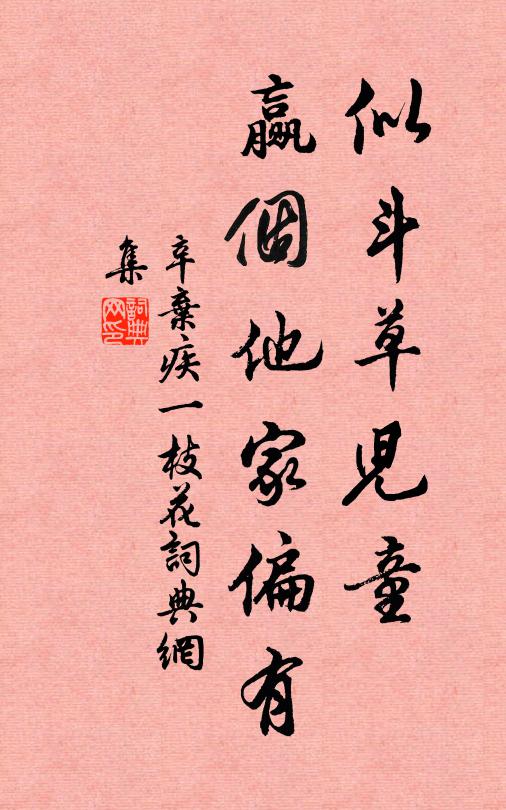 似斗草兒童
贏個他家偏有
辛棄疾一枝花詞典網
集
詞典網印